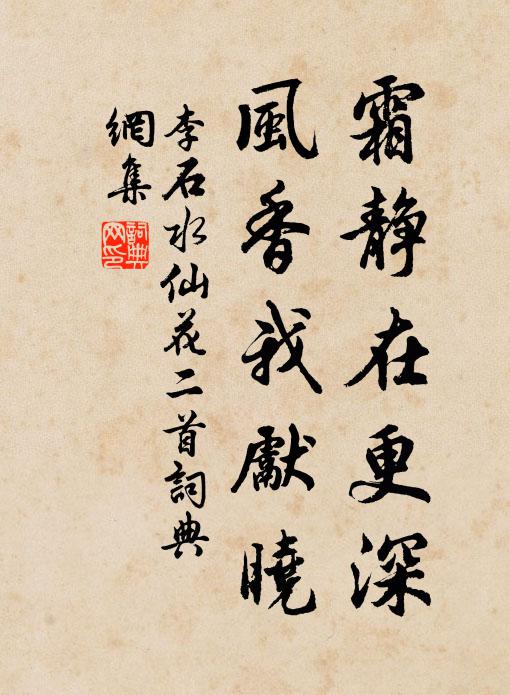 霜静在更深
風香我獻曉
李石水仙花二首詞典
網集
詞典网印